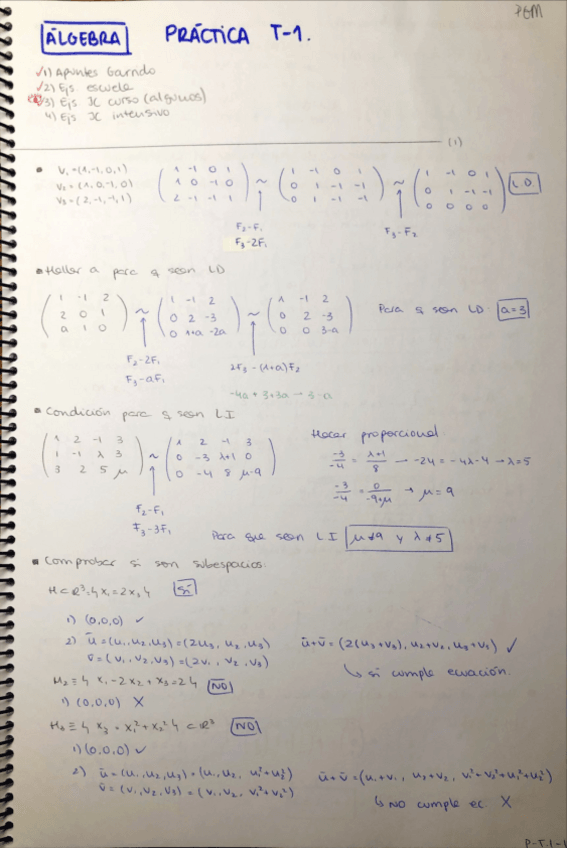 PGM
ÁLGEBRA PRÁCTICA T-1.
1) Apuntes Garrido
2) Ejs escuela
3) Ejs JC curso (algunos)
4) Ejs JC intensivo
(1)
V₁=(1,-1,0,1)
V₂=(1,0,-1,0)
V₃=(2,-1,-1,1)
(1 -1 0 1 / 1 0 -1 0 / 2 -1 -1 1) ~ (1 -1 0 1 / 0 1 -1 -1 / 0 1 -1 -1) ~ (1 -1 0 1 / 0 1 -1 -1 / 0 0 0 0) LD
F₂-F₁
F₃-2F₁
F₃-F₂
Hallar a para q sean LD
(1 -1 2 / 2 0 1 / a 1 0) ~ (1 -1 2 / 0 2 -3 / 0 1+a -2a) ~ (1 -1 2 / 0 2 -3 / 0 0 3-a) Para q sean LD a=3
F₂-2F₁
F₃-aF₁
2F₃-(1+a)F₂
-4a+3+3a → 3-a
Condición para q sean LI
(1 2 -1 3 / 1 -1 λ 3 / 3 2 5 μ) ~ (1 2 -1 3 / 0 -3 λ+1 0 / 0 -4 8 μ-9)
F₂-F₁
F₃-3F₁
Hacer proporcional
-3/-4 = λ+1/8 → -24=-4λ-4 → λ=5
-3/-4 = 0/-9+μ → μ=9
Para que sean LI μ≠9 y λ≠5
Comprobar si son subespacios:
H⊂R³={x₁=2x₃} SÍ
1) (0,0,0) ✓
2) ū=(u₁,u₂,u₃)=(2u₃,u₂,u₃) ū+v̄=(2(u₃+v₃),u₂+v₂,u₃+v₃) ✓
v̄=(v₁,v₂,v₃)=(2v₁,v₂,v₃) ↳ sí cumple ecuación.
H₂≡{x₁-2x₂+x₃=2} NO
1) (0,0,0) X
H₃≡{x₃=x₁²+x₂²}⊂R³ NO
1) (0,0,0) ✓
2) ū=(u₁,u₂,u₃)=(u₁,u₂,u₁²+u₂²) ū+v̄=(u₁+v₁,u₂+v₂,v₁²+v₂²+u₁²+u₂²)
v̄=(v₁,v₂,v₃)=(v₁,v₂,v₁²+v₂²) ↳ NO cumple ec X
P-T.1-1